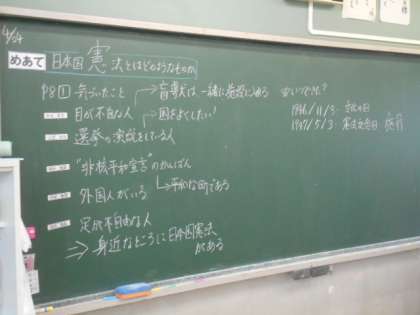 4/24
めあて 日本国憲法とはどのようなものか
P8 1 気づいたこと
→盲導犬は一緒に施設に入れる
目が不自な人 → 国をよくしたい!
選挙の演説をしている人
"非核平和宣言"のかんばん
→平和な町である
外国人がいる
足が不自由な人
⇒ 身近なところに日本国憲法
がある
1946/11/3
1947/5/3 憲法記念日 施行